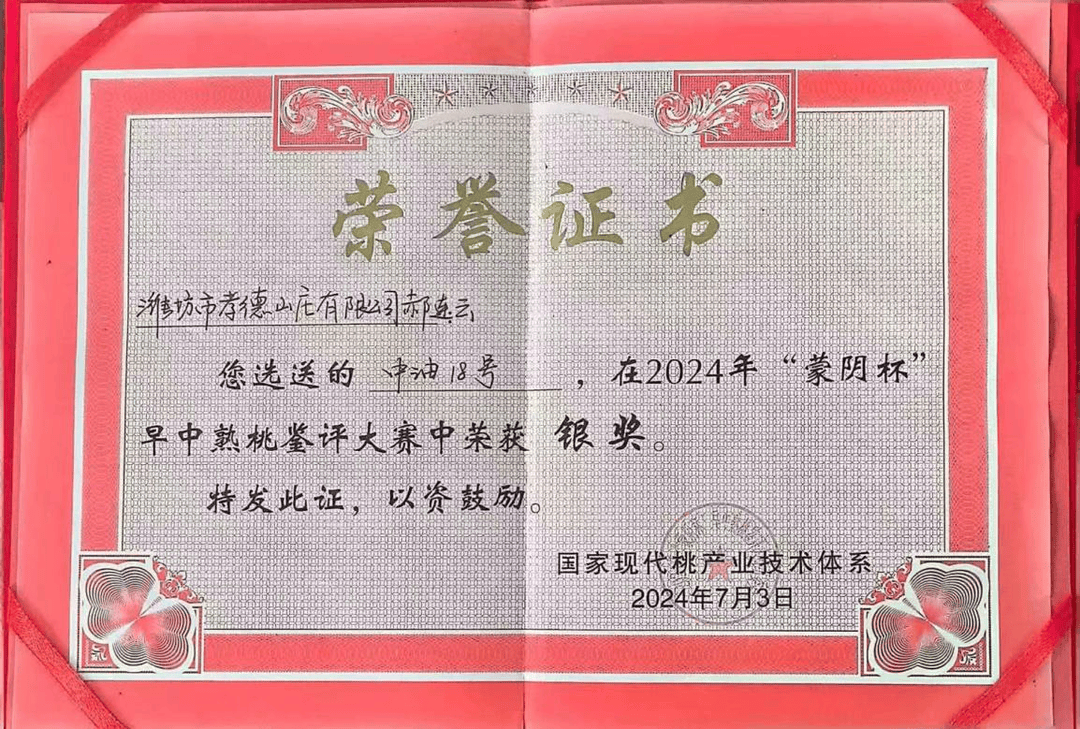 荣誉证书
潍坊市孝德山庄有限公司郝连云
您选送的 中油18号 ，在2024年“蒙阴杯”
早中熟桃鉴评大赛中荣获 银奖。
特发此证，以资鼓励。
国家现代桃产业技术体系
2024年7月3日